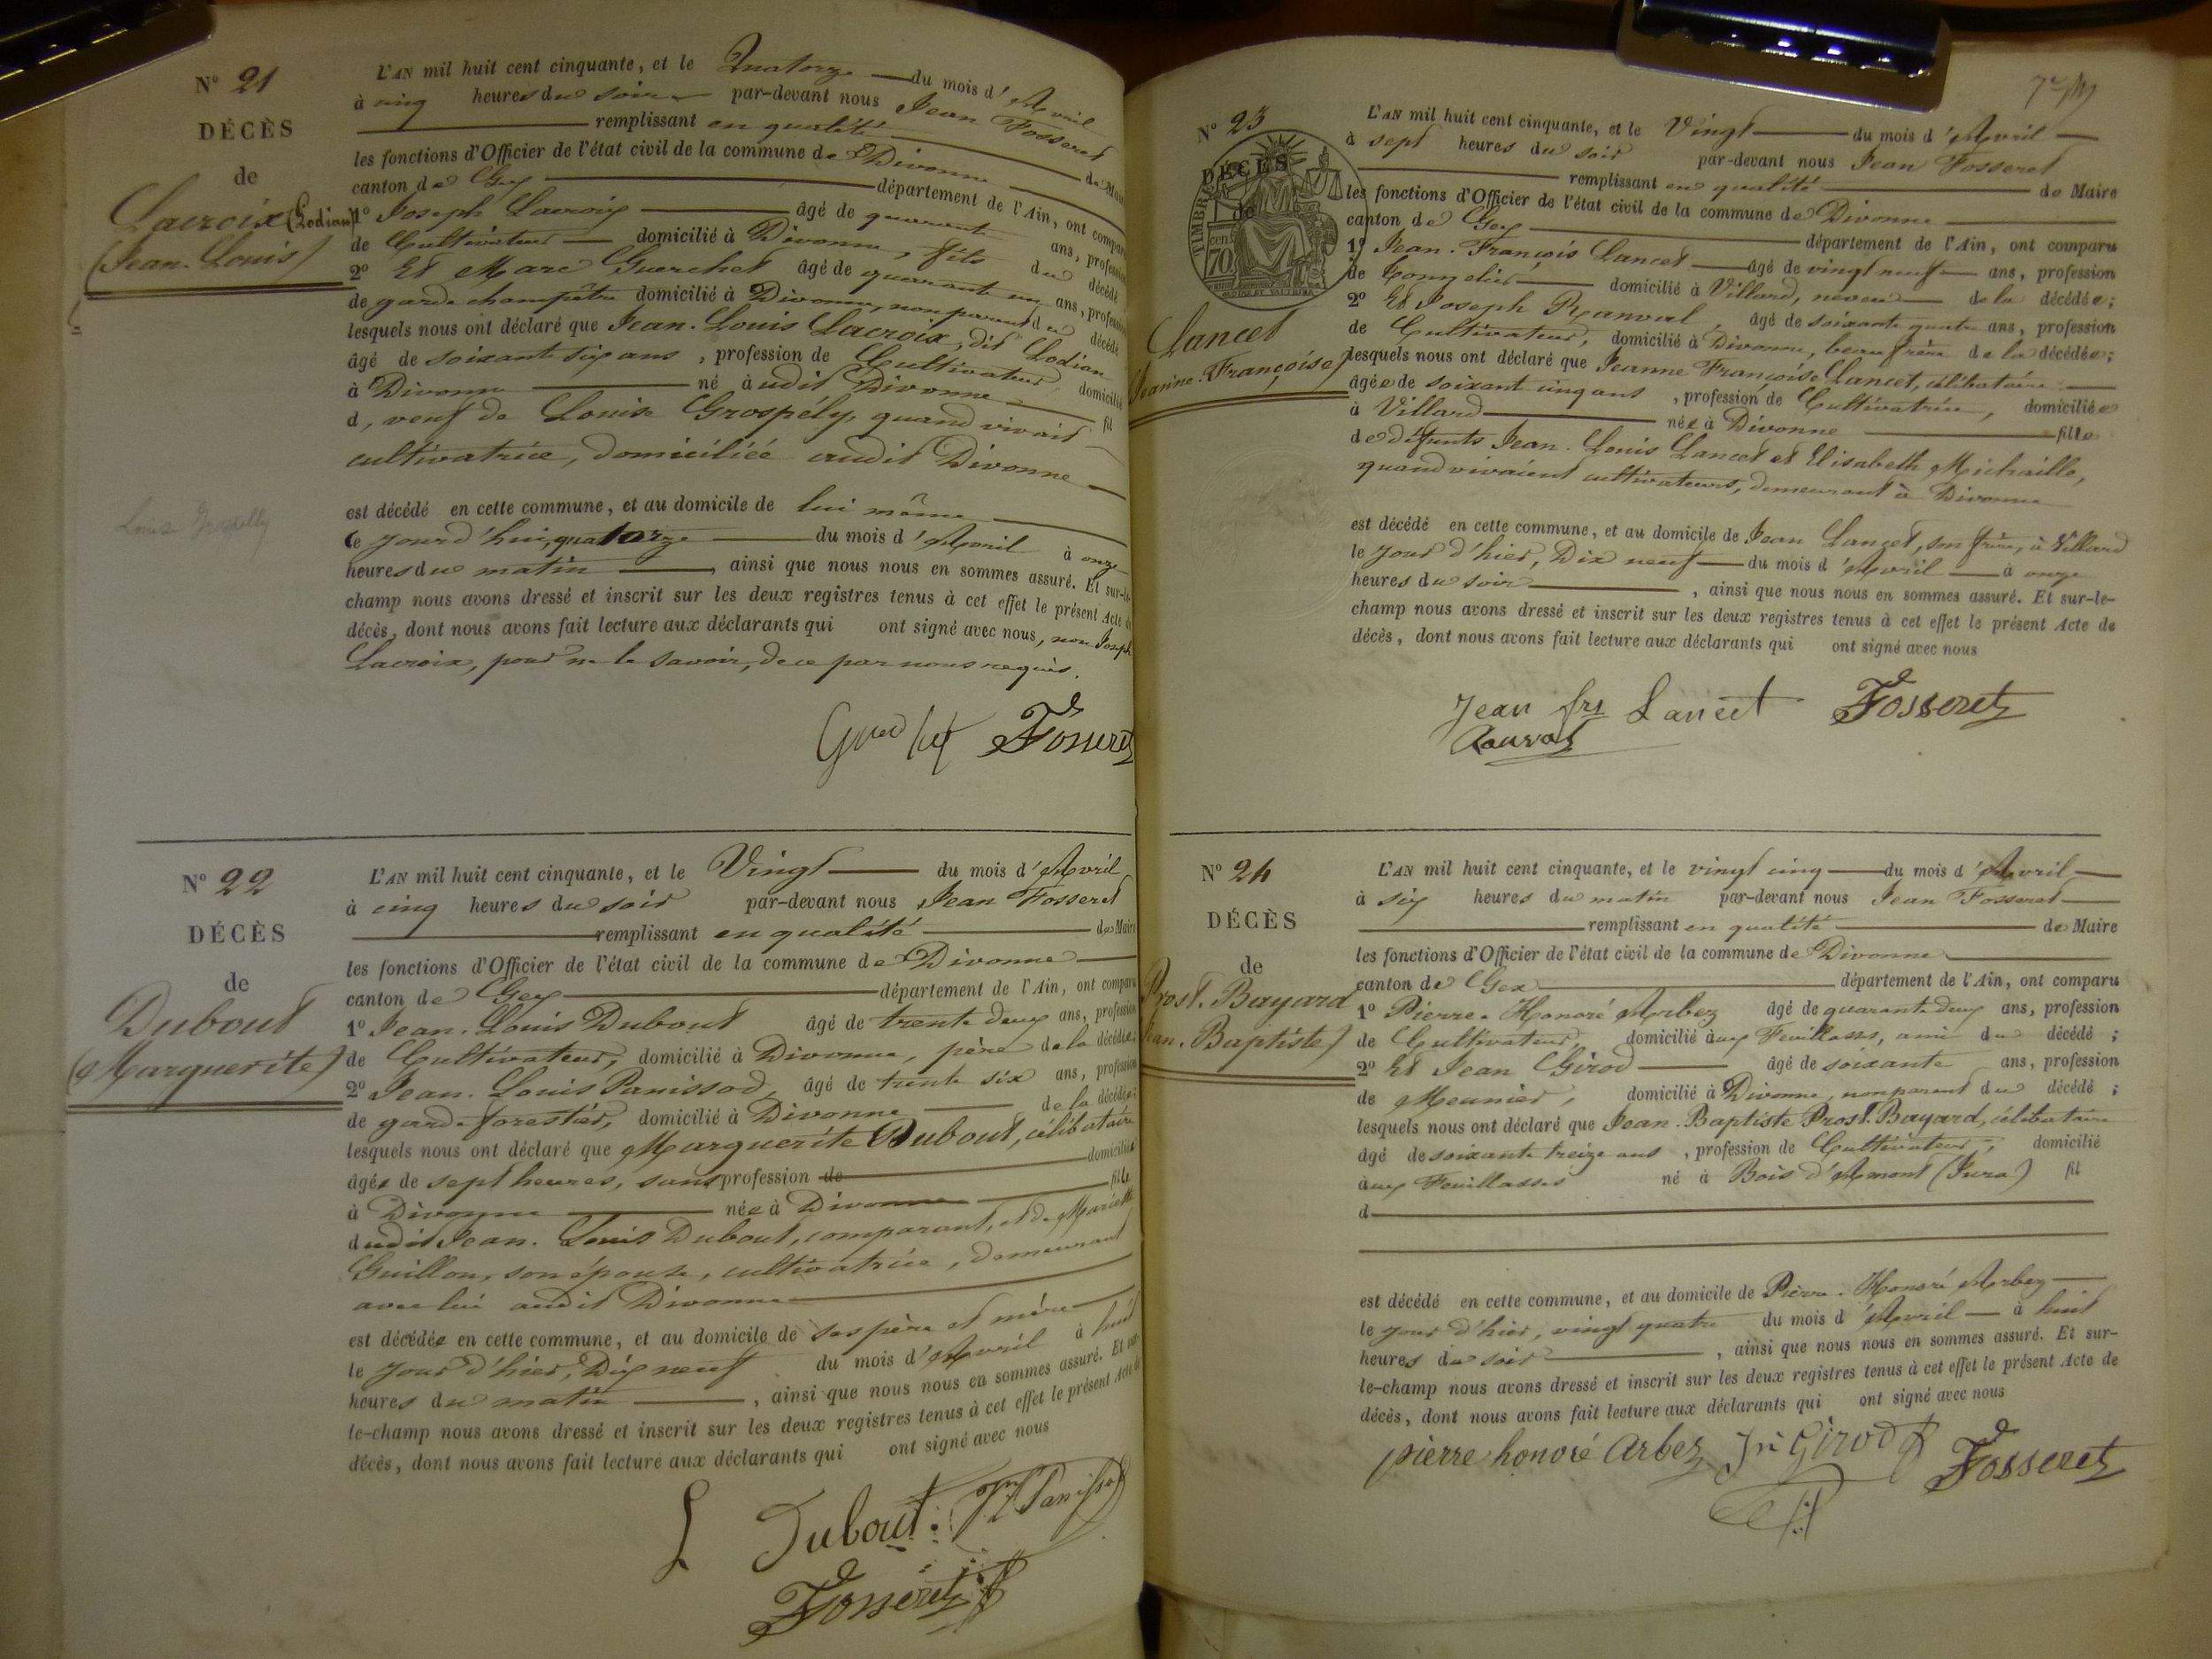 N° 21
DÉCÈS
de
Lacroix (Lodian)
(Jean-Louis)
L'AN mil huit cent cinquante, et le Quatorze du mois d'Avril
à cinq heures du soir par-devant nous Jean Fosseret
remplissant en qualité de Maire
les fonctions d'Officier de l'état civil de la commune de Divonne
canton de Gex département de l'Ain, ont comparu
1° Joseph Lacroix âgé de quarante ans, profession
de Cultivateur domicilié à Divonne, fils du décédé
2° Et Marc Guerchet âgé de quarante un ans, profession
de garde champêtre domicilié à Divonne, non parent du décédé
lesquels nous ont déclaré que Jean-Louis Lacroix, dit Lodian
âgé de soixante six ans, profession de Cultivateur domicilié
à Divonne né audit Divonne fil
d, veuf de Louise Grospély, quand vivait
cultivatrice, domiciliée audit Divonne
est décédé en cette commune, et au domicile de lui même
le jourd'hui, quatorze du mois d'Avril à onze
heures du matin, ainsi que nous nous en sommes assuré. Et sur-le-
champ nous avons dressé et inscrit sur les deux registres tenus à cet effet le présent Acte de
décès, dont nous avons fait lecture aux déclarants qui ont signé avec nous, non Joseph
Lacroix, pour ne le savoir, de ce par nous requis.
Guerchet Fosseret
N° 22
DÉCÈS
de
Dubout
(Marguerite)
L'AN mil huit cent cinquante, et le Vingt du mois d'Avril
à cinq heures du soir par-devant nous Jean Fosseret
remplissant en qualité de Maire
les fonctions d'Officier de l'état civil de la commune de Divonne
canton de Gex département de l'Ain, ont comparu
1° Jean-Louis Dubout âgé de trente deux ans, profession
de Cultivateur, domicilié à Divonne, père de la décédée
2° Jean-Louis Panissod, âgé de trente six ans, profession
de garde forestier, domicilié à Divonne de la décédée
lesquels nous ont déclaré que Marguerite Dubout, célibataire
âgée de sept heures, sans profession de domiciliée
à Divonne née à Divonne fille
dudit Jean-Louis Dubout, comparant, et de Mariette
Guillon, son épouse, cultivatrice, demeurant
avec lui audit Divonne
est décédée en cette commune, et au domicile de ses père et mère
le jour d'hier, Dix neuf du mois d'Avril à huit
heures du matin, ainsi que nous nous en sommes assuré. Et sur-
le-champ nous avons dressé et inscrit sur les deux registres tenus à cet effet le présent Acte de
décès, dont nous avons fait lecture aux déclarants qui ont signé avec nous
L Dubout. Panissod
Fosseret
N° 23
DÉCÈS
de
TIMBRE
cent 70
Lancet
Jeanne-Françoise)
L'AN mil huit cent cinquante, et le Vingt du mois d'Avril
à sept heures du soir par-devant nous Jean Fosseret
remplissant en qualité de Maire
les fonctions d'Officier de l'état civil de la commune de Divonne
canton de Gex département de l'Ain, ont comparu
1° Jean-François Lancet âgé de vingt neuf ans, profession
de domicilié à Villard, neveu de la décédée;
2° Et Joseph Ranval, âgé de soixante quatre ans, profession
de Cultivateur, domicilié à Divonne, beau frère de la décédée;
lesquels nous ont déclaré que Jeanne Françoise Lancet, célibataire
âgée de soixant cinq ans, profession de Cultivatrice, domiciliée
à Villard née à Divonne fille
de défunts Jean-Louis Lancet et Elisabeth Michaille,
quand vivaient cultivateurs, demeurant à Divonne
est décédé en cette commune, et au domicile de Jean Lancet, son frère, à Villard
le jour d'hier, Dix neuf du mois d'Avril à onze
heures du soir, ainsi que nous nous en sommes assuré. Et sur-le-
champ nous avons dressé et inscrit sur les deux registres tenus à cet effet le présent Acte de
décès, dont nous avons fait lecture aux déclarants qui ont signé avec nous
Jean frs Lancet Fosseret
Ranval
N° 24
DÉCÈS
de
Prost-Bayard
Jean-Baptiste)
L'AN mil huit cent cinquante, et le vingt cinq du mois d'Avril
à six heures du matin par-devant nous Jean Fosseret
remplissant en qualité de Maire
les fonctions d'Officier de l'état civil de la commune de Divonne
canton de Gex département de l'Ain, ont comparu
1° Pierre-Honoré Arbez âgé de quarante deux ans, profession
de Cultivateur, domicilié aux Feuillasses, ami du décédé;
2° Et Jean Girod âgé de soixante ans, profession
de Meunier, domicilié à Divonne, non parent du décédé;
lesquels nous ont déclaré que Jean-Baptiste Prost-Bayard, célibataire
âgé de soixante treize ans, profession de Cultivateur, domicilié
aux Feuillasses né à Bois d'Amont (Jura) fil
d
est décédé en cette commune, et au domicile de Pierre-Honoré Arbez
le jour d'hier, vingt quatre du mois d'Avril à huit
heures du soir, ainsi que nous nous en sommes assuré. Et sur-
le-champ nous avons dressé et inscrit sur les deux registres tenus à cet effet le présent Acte de
décès, dont nous avons fait lecture aux déclarants qui ont signé avec nous
pierre honoré arbez Jn Girod Fosseret